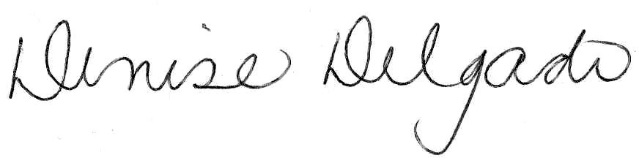 Denise Delgado